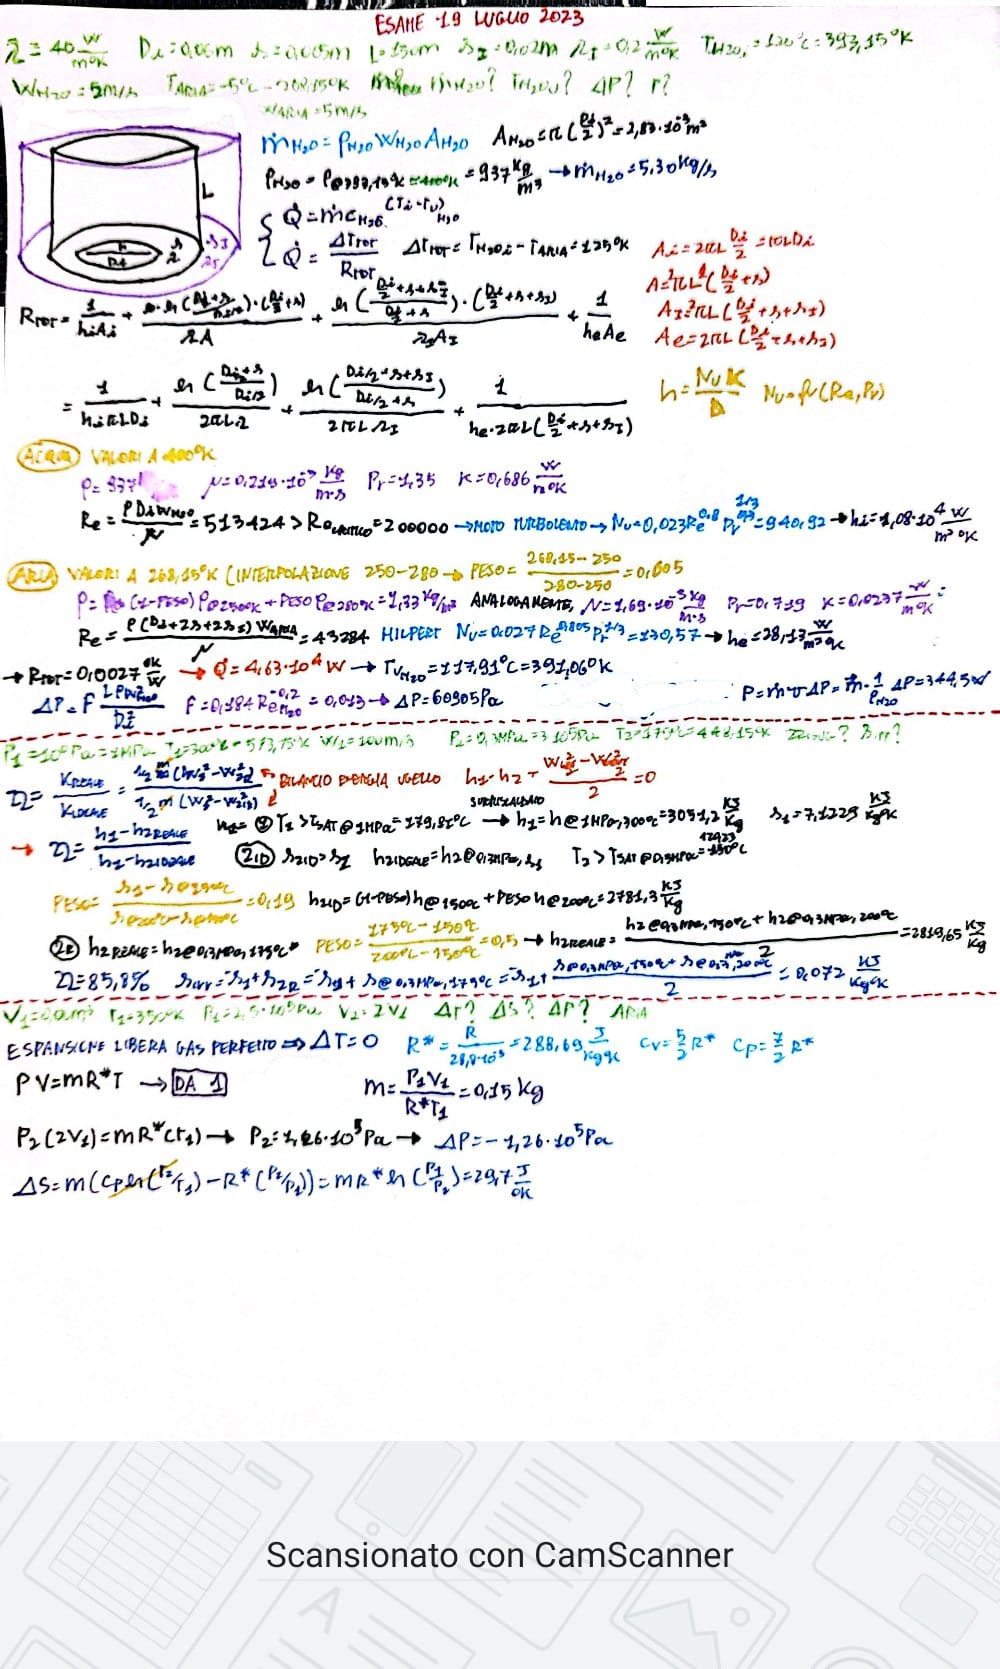 ESAME 19 LUGLIO 2023
λ = 40 W/m°K Di = 0,06m s = 0,005m L = 150m sI = 0,02m λI = 0,2 W/m°K TH2Oi = 120°C = 393,15°K
WH2O = 5m/s TARIA = -5°C = 268,15°K ṁH2O? TH2Ou? ΔP? P?
WARIA = 5m/s
ṁH2O = ρH2O WH2O AH2O AH2O = π(Di/2)² = 2,83·10⁻³m²
ρH2O = ρ@393,15°K ≃ 400°K = 937 Kg/m³ → ṁH2O = 5,30 kg/s
Q̇ = ṁcH2O (Ti-Tu)H2O
Q̇ = ΔTTOT/RTOT ΔTTOT = TH2Oi - TARIA = 125°K
L
Ai = 2πL Di/2 = πLDi
A = 2πL(Di/2+s)
AI = 2πL(Di/2+s+sI)
Ae = 2πL(Di/2+s+sI)
= 1/(hi πLDi) + ln((Di/2+s)/(Di/2))/(2πLλ) + ln((Di/2+s+sI)/(Di/2+s))/(2πLλI) + 1/(he·2πL(Di/2+s+sI))
h = Nu K/D Nu = f(Re,Pr)
ACQUA VALORI A 400°K
ρ = 937 μ = 0,219·10⁻³ Kg/m·s Pr = 1,35 K = 0,686 W/m°K
Re = ρDiWH2O/μ = 513424 > ReCRITICO = 200000 → MOTO TURBOLENTO → Nu = 0,023Re^0,8 Pr^1/3 = 940,92 → hi = 1,08·10⁴ W/m²°K
ARIA VALORI A 268,15°K (INTERPOLAZIONE 250-280 → PESO = (268,15-250)/(280-250) = 0,605
ρ = (1-PESO)ρ@250°K + PESO ρ@280°K = 1,33 Kg/m³ ANALOGAMENTE, μ = 1,69·10⁻⁵ Kg/m·s Pr = 0,719 K = 0,0237 W/m°K
Re = ρ(Di+2s+2sI)WARIA/μ = 43284 HILPERT Nu = 0,027Re^0,805 Pr^1/3 = 130,57 → he = 28,13 W/m²°K
→ RTOT = 0,0027 °K/W → Q̇ = 4,63·10⁴ W → TuH2O = 117,91°C = 391,06°K
ΔP = F LρW²H2O/Di2 F = 0,184 Re H2O^-0,2 = 0,013 → ΔP = 60905Pa
P = ṁvΔP = ṁ·1/ρH2O ΔP = 344,5W
P1 = 10⁶Pa = 1MPa T1 = 300°C = 573,15°K W1 = 100m/s P2 = 0,3MPa = 3·10⁵Pa T2 = 175°C = 448,15°K
η = KREALE/KIDEALE
BILANCIO ENERGIA UGELLO
SURRISCALDATO
→ η = (h1-h2REALE)/(h1-h2IDEALE) T1 > TSAT@1MPa = 179,81°C → h1 = h@1MPa,300°C = 3051,2 KJ/Kg s1 = 7,1229 KJ/Kg°K
2ID s2ID = s1 h2IDEALE = h2@0,3MPa,s1
= 0,19 h2ID = (1-PESO)h@150°C + PESO h@200°C = 2781,3 KJ/Kg
2R h2REALE = h2@0,3MPa,175°C PESO = (175°C-150°C)/(200°C-150°C) = 0,5 → h2REALE = (h2@0,3MPa,150°C + h2@0,3MPa,200°C)/2 = 2819,65 KJ/Kg
η = 85,8%
= 0,072 KJ/Kg°K
T1 = 350°K V2 = 2V1 ΔT? ΔS? ΔP? ARIA
ESPANSIONE LIBERA GAS PERFETTO ⇒ ΔT = 0 R* = R/28,8·10⁻³ = 288,69 J/Kg°K Cv = 5/2 R* Cp = 7/2 R*
PV = mR*T → DA 1 m = P1V1/R*T1 = 0,15kg
P2(2V1) = mR*(T1) → P2 = 1,26·10⁵Pa → ΔP = -1,26·10⁵Pa
ΔS = m(Cp ln(T2/T1) - R*(P2/P1)) = mR* ln(P1/P2) = 29,7 J/°K
Scansionato con CamScanner